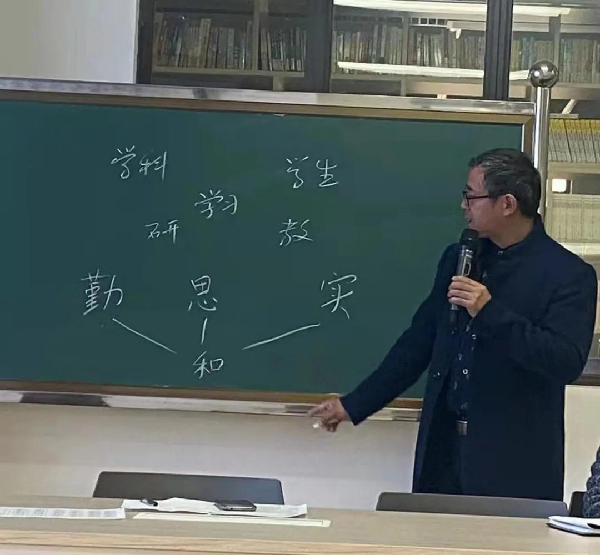 学科 学生
学习
研 教
勤 思 实
和